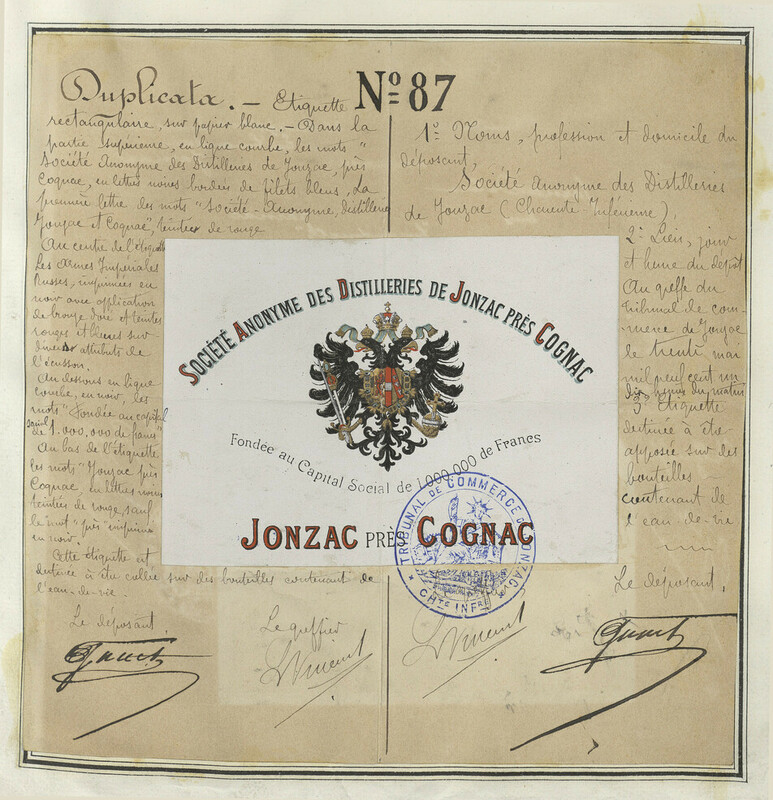 Duplicata. – Etiquette
rectangulaire, sur papier blanc. – Dans la
partie supérieure, en ligne courbe, les mots "
Société Anonyme des Distilleries de Jonzac, près
Cognac, en lettres noires bordées de filets bleus, la
première lettre des mots "Société-Anonyme, distillerie
Jonzac et Cognac", teintées de rouge
Au centre de l'étiquette
Les Armes Impériales
Russes, imprimées en
noir avec application
de bronze doré et teintes
rouges et bleues sur
divers attributs de
l'écusson.
Au dessous en ligne
courbe, en noir, les
mots "Fondée au capital
social de 1.000.000 de francs"
Au bas de l'étiquette
les mots "Jonzac près
Cognac, en lettres noires
teintées de rouge, sauf
le mot "près" imprimé
en noir.
Cette étiquette est
destinée à être collée sur des bouteilles contenant de
l'eau-de-vie.
Le déposant
Le greffier
LVincent
Nº 87
1º Noms, profession et domicile du
déposant,
Société Anonyme des Distilleries
de Jonzac (Charente-Inférieure),
2º Lieu, jour
et heure du dépôt
Au greffe du
Tribunal de com-
merce de Jonzac
le trente mai
mil neuf cent un
dix heures du matin
3º Etiquette
destinée à être
apposée sur des
bouteilles
contenant de
l'eau-de-vie
Le déposant,
LVincent
SOCIÉTÉ ANONYME DES DISTILLERIES DE JONZAC PRÈS COGNAC
Fondée au Capital Social de 1.000.000 de Francs
JONZAC PRÈS COGNAC
TRIBUNAL DE COMMERCE DE JONZAC
CHTE INFRE